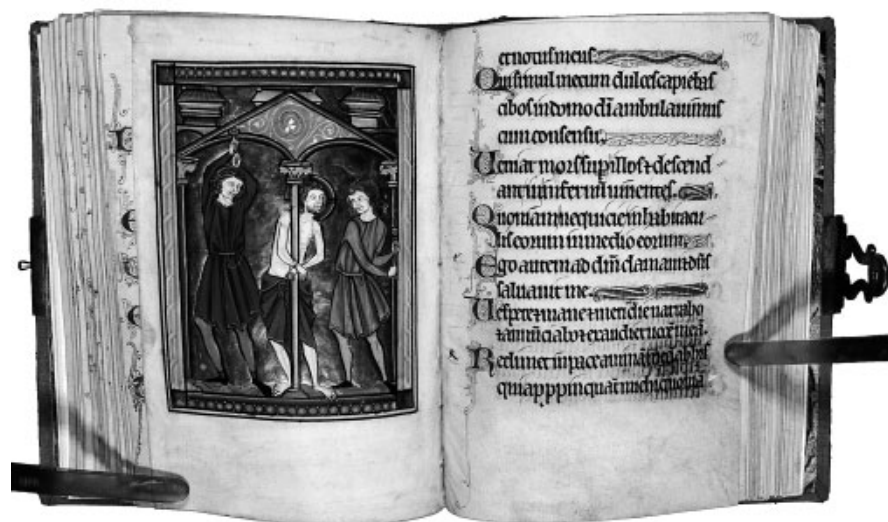 102
et notus meus.
Qui simul mecum dulces capiebas
cibos in domo dī ambulauimus
cum consensu.
Ueniat mors sup illos ⁊ descend
ant in infernum uiuentes.
Qnoniam nequicie in habitacu
lis eorum in medio eorum.
Ego autem ad dn̄m clamaui ⁊ dn̄s
saluauit me.
Uespere ⁊ mane ⁊ meridie narrabo
⁊ annūciabo ⁊ exaudiet uocē meā.
Redimet in pace animā meā ab his
qui app̄pinquāt michi qm̄